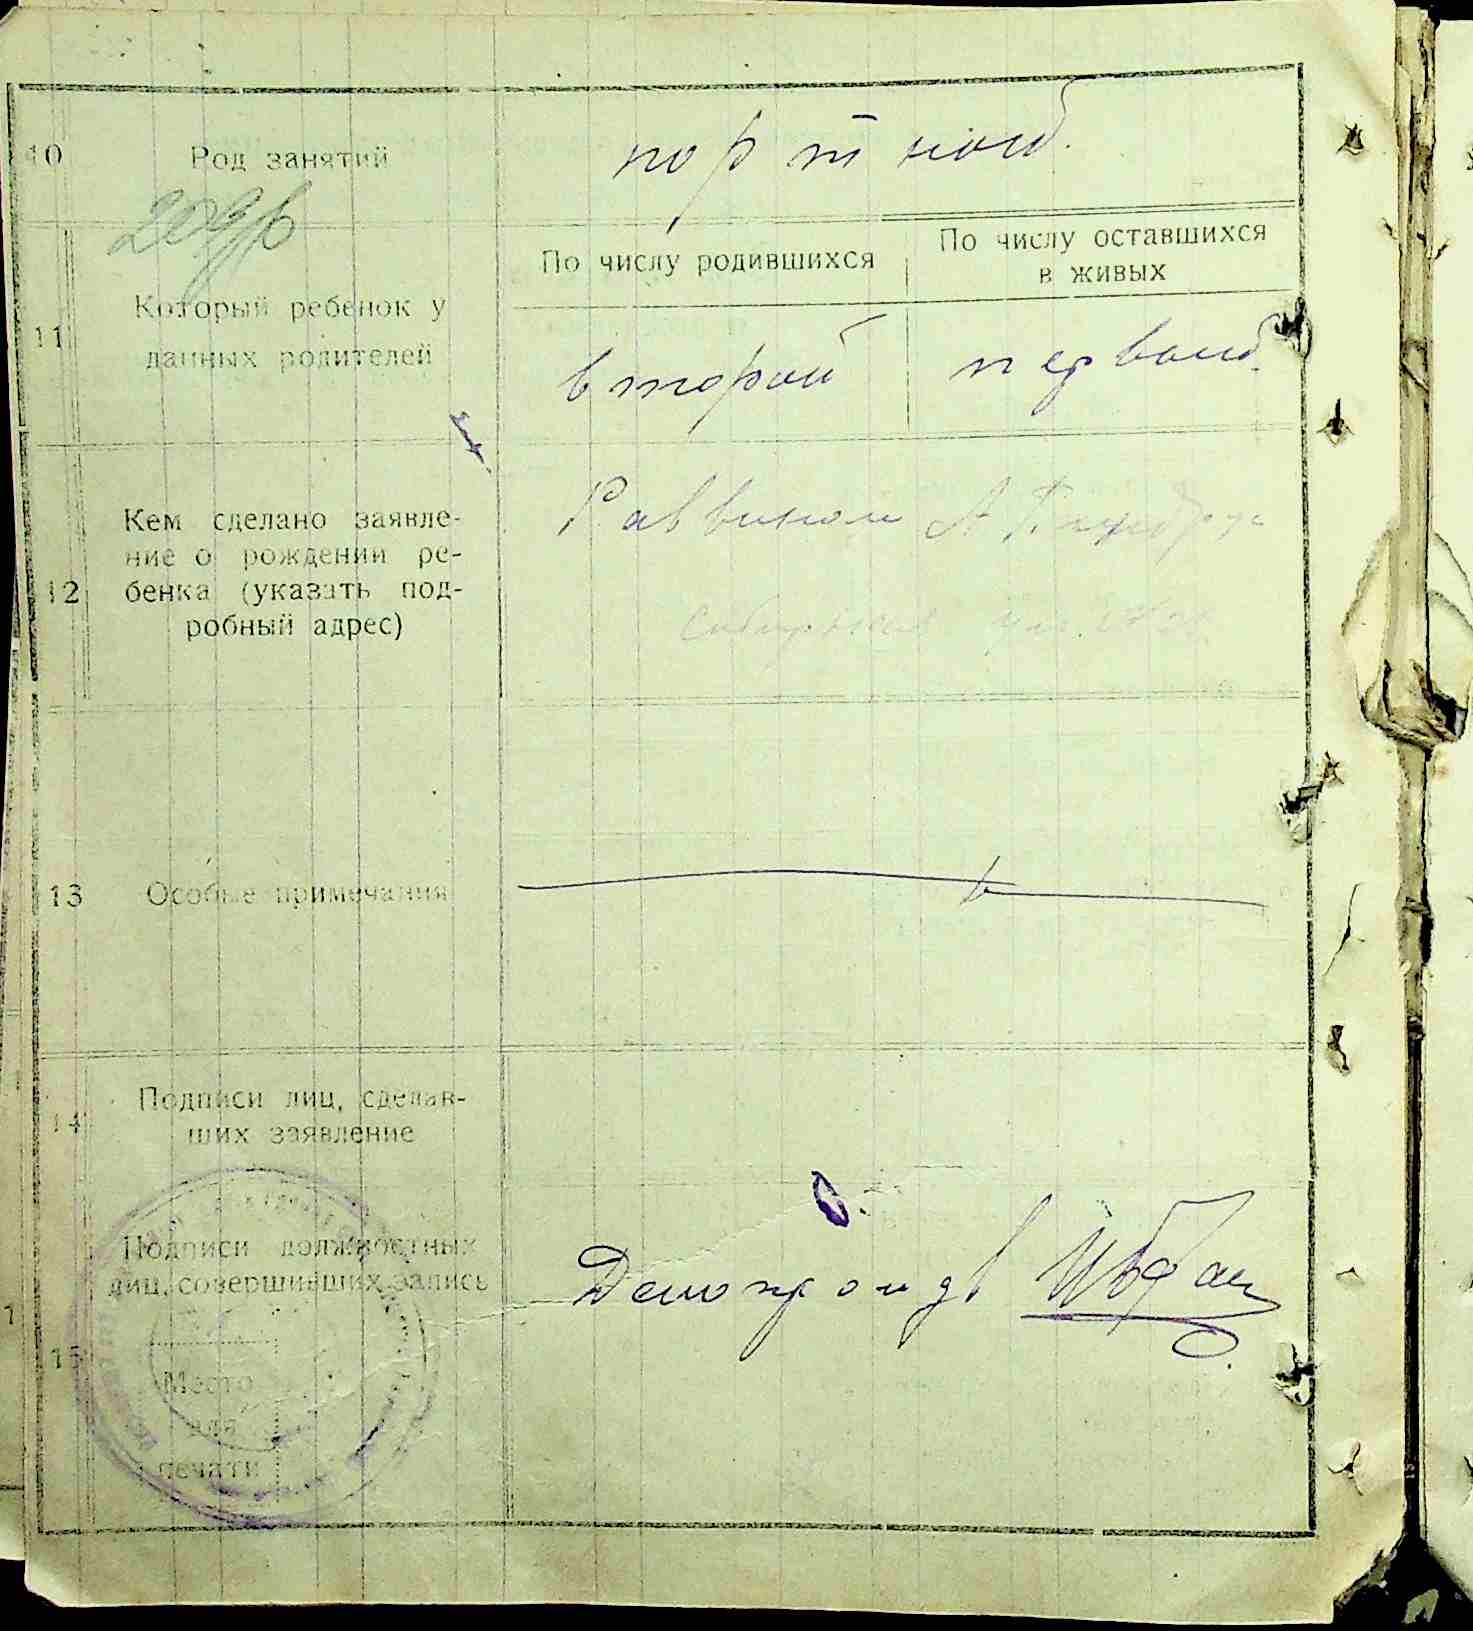 10 Род занятий портной.
По числу родившихся
По числу оставшихся
в живых
11 Который ребенок у
данных родителей
второй
первый.
12 Кем сделано заявле-
ние о рождении ре-
бенка (указать под-
робный адрес)
Раввином А
ул.
13 Особые примечания
14 Подписи лиц, сделав-
ших заявление
15 Подписи должностных
лиц, совершивших запись
Место
для
печати
Делопроизв